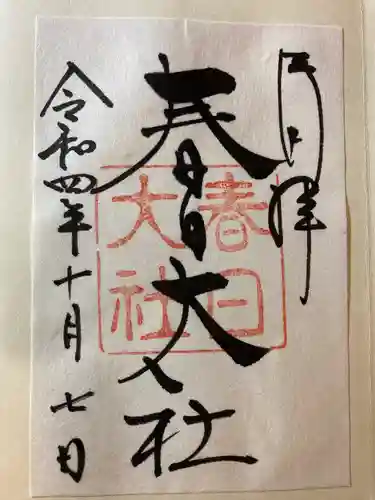 奉拝
春日大社
春日
大社
令和四年十月七日